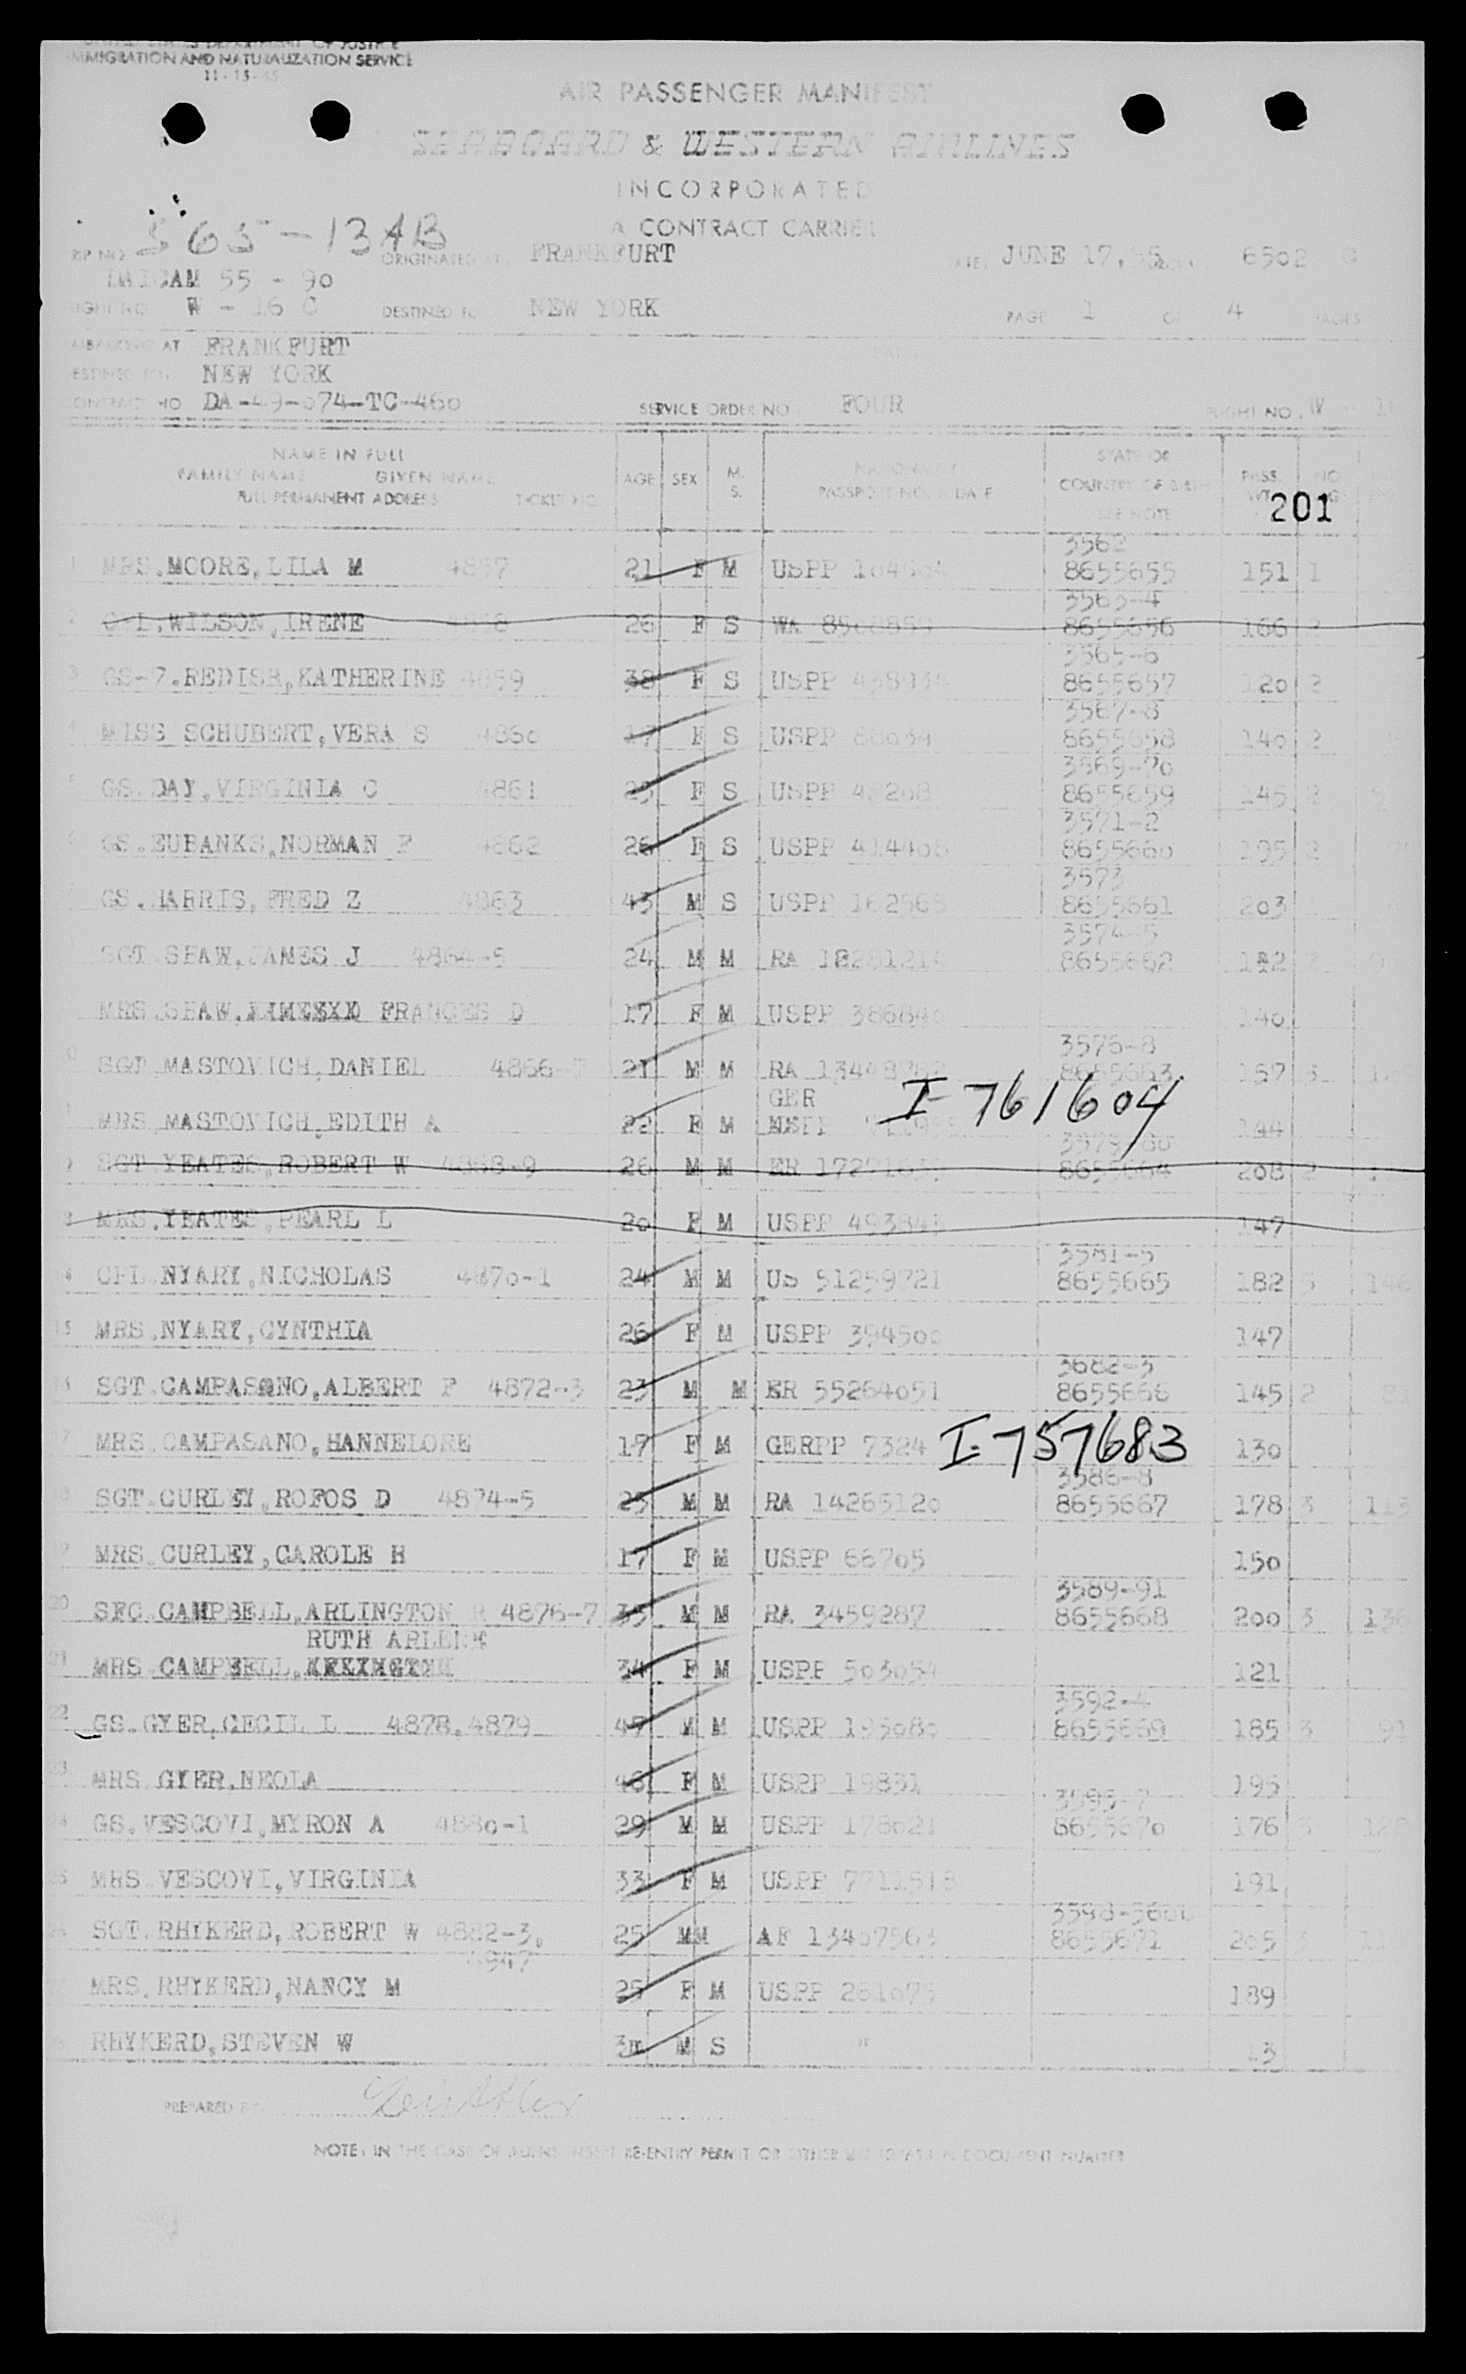 UNITED STATES DEPARTMENT OF JUSTICE
IMMIGRATION AND NATURALIZATION SERVICE
11-15-
AIR PASSENGER MANIFEST
SEABOARD & WESTERN AIRLINES
INCORPORATED
A CONTRACT CARRIER
TRIP NO. 565-134B ORIGINATED AT FRANKFURT DATE: JUNE 17, 55 6502 C
55 - 90
FLIGHT NO W - 16 C DESTINED TO NEW YORK PAGE 1 OF 4 PAGES
EMBARKING AT FRANKFURT
DESTINED FOR NEW YORK
CONTRACT NO DA-49-074-TC-460 SERVICE ORDER NO FOUR FLIGHT NO. W - 16
NAME IN FULL
FAMILY NAME GIVEN NAME
FULL PERMANENT ADDRESS TICKET NO.
AGE SEX M. S.
NATIONALITY
PASSPORT NO. & DATE
STATE OR
COUNTRY OF BIRTH
SEE NOTE
PASS. WT. NO.
201
3562
1 MRS.MOORE,LILA M 4857 21 F M USPP 8655655 151 1
3563-4
2 CPL.WILSON,IRENE 4858 26 F S WA 8655656 166 2
3565-6
3 GS-7.REDISH,KATHERINE 4859 38 F S USPP 8655657 120 2
3567-8
4 MISS SCHUBERT,VERA S 4860 17 F S USPP 8655658 140 2
3569-70
5 GS.DAY,VIRGINIA C 4861 25 F S USPP 8655659 145 2
3571-2
6 GS.EUBANKS,NORMAN F 4862 26 F S USPP 414408 8655660 195 2
3573
7 GS.HARRIS,FRED Z 4863 43 M S USPP 162568 8655661 203
3574-5
SGT.SHAW,JAMES J 4864-5 24 M M RA 8655662 2
MRS.SHAW, FRANCES D 17 F M USPP 140
3576-8
10 SGT.MASTOVICH,DANIEL 4866-7 21 M M RA 8655663 167 3
GER I-761604
MRS MASTOVICH,EDITH A 22 F M 144
SGT.YEATES,ROBERT W 4868-9 26 M M ER 8655664 208 2
MRS.YEATES,PEARL L 20 F M USPP 147
3581-5
14 CPL.NYARY,NICHOLAS 4870-1 24 M M US 51259721 8655665 182 3 146
15 MRS.NYARY,CYNTHIA 26 F M USPP 394500 147
3682-3
16 SGT.CAMPASANO,ALBERT F 4872-3 23 M M ER 55264051 8655666 145 2
17 MRS.CAMPASANO,HANNELORE 17 F M GERPP 7324 I-757683 130
3586-8
18 SGT.CURLEY,ROFOS D 4874-5 25 M M RA 14265120 8655667 178 3 113
19 MRS.CURLEY,CAROLE H 17 F M USPP 66705 150
3589-91
20 SFC.CAMPBELL,ARLINGTON R 4876-7 35 M M RA 3459287 8655668 200 3 136
RUTH ARLENE
21 MRS CAMPBELL, 34 F M USPP 503054 121
3592-4
22 GS.GYER,CECIL L 4878,4879 47 M M USPP 195080 8655669 185 3 91
23 MRS.GYER,NEOLA 48 F M USPP 19831 195
3595-7
24 GS.VESCOVI,MYRON A 4880-1 29 M M USPP 178021 8655670 176 3
25 MRS VESCOVI,VIRGINIA 33 F M USPP 191
3598-3600
26 SGT.RHYKERD,ROBERT W 4882-3, 25 MM AF 13407563 8655671 205 3
4947
MRS.RHYKERD,NANCY M 25 F M USPP 189
RHYKERD,STEVEN W 3m M S "
PREPARED BY
NOTE: IN THE CASE OF ALIENS INSERT RE-ENTRY PERMIT OR OTHER DOCUMENT NUMBER